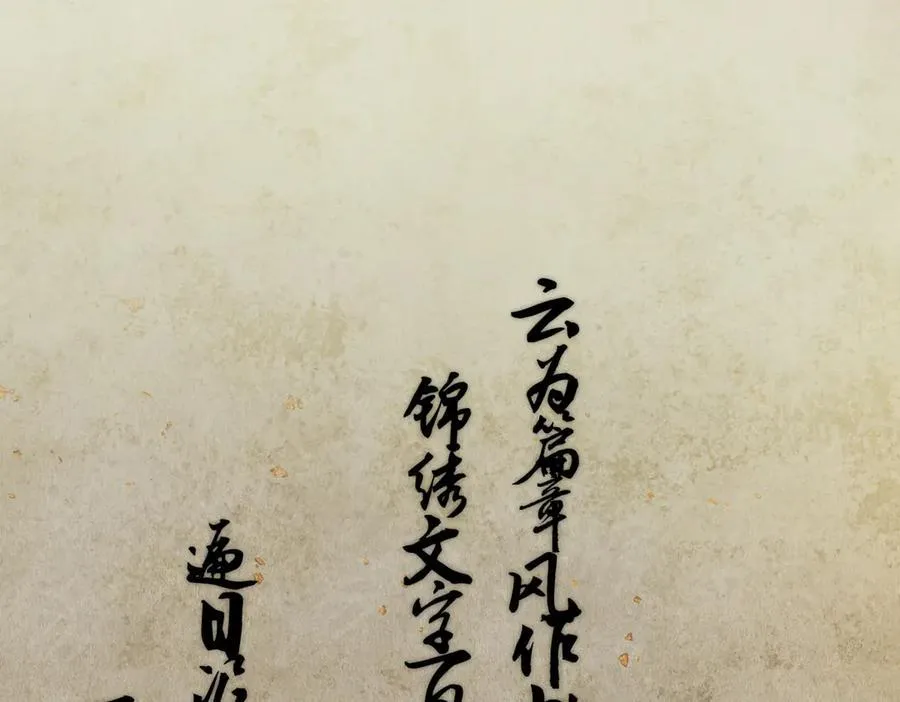 云为篇章风作
锦绣文字一
遍日